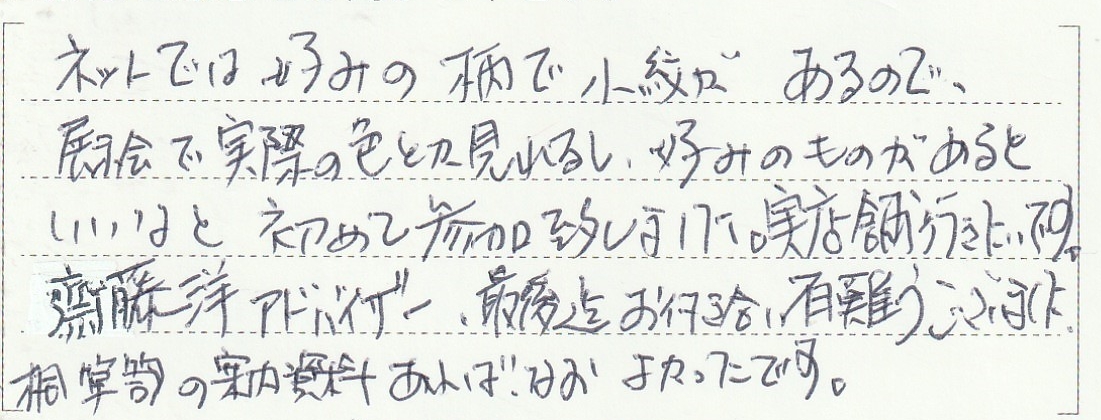 ネットでは好みの柄で小紋が あるので、
展示会で実際の色とか見れるし、好みのものがあると
いいなと 初めて参加致しました。実店舗行きたいです。
齋藤洋アドバイザー、最後迄お付き合い有難うございました
桐箪笥の実力資料あれば、なお よかったです。